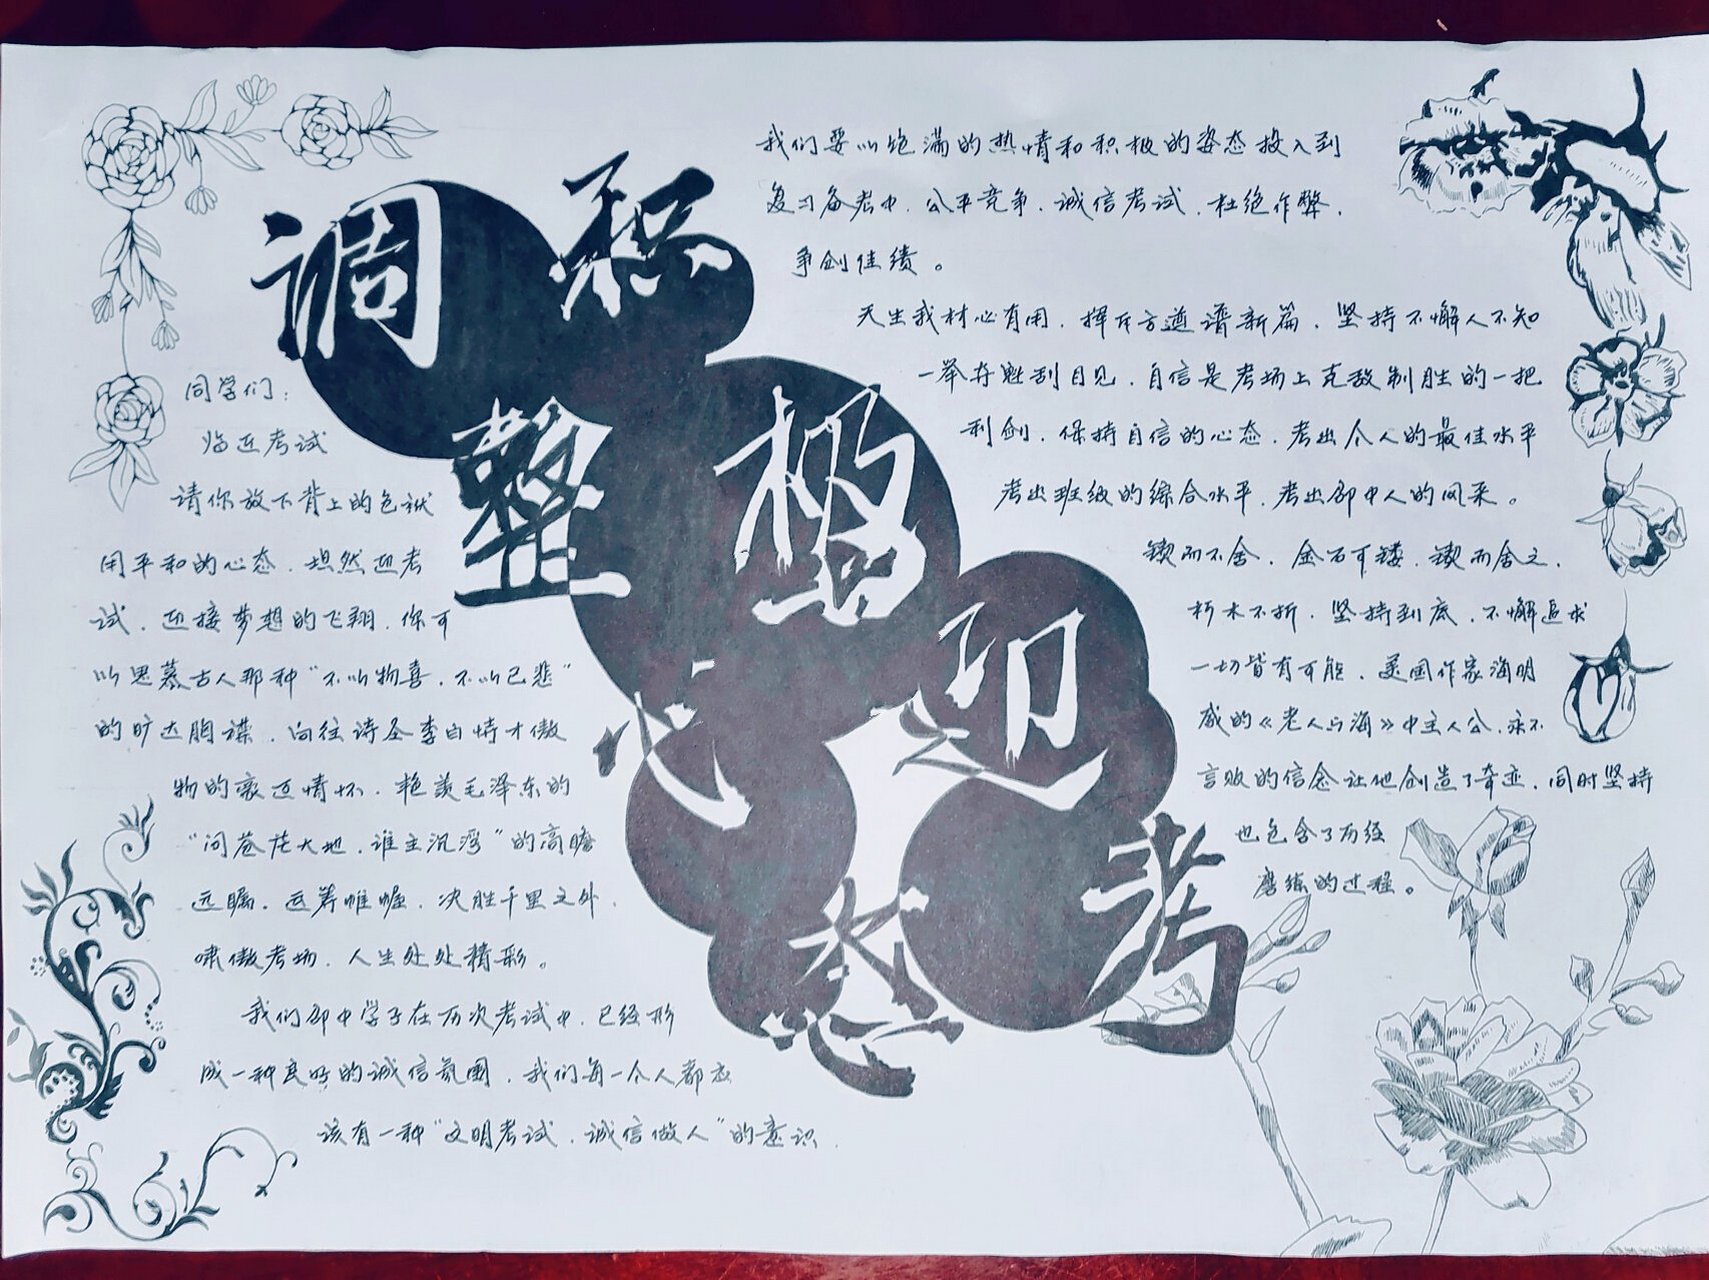 调整心态
积极迎考
同学们：
临近考试
请你放下背上的包袱
用平和的心态．坦然迎考
试．迎接梦想的飞翔．你可
以思慕古人那种“不以物喜．不以己悲”
的旷达胸襟．向往诗圣李白恃才傲
物的豪迈情怀．艳羡毛泽东的
“问苍茫大地．谁主沉浮”的高瞻
远瞩．运筹帷幄．决胜千里之外．
啸傲考场．人生处处精彩。
我们邵中学子在历次考试中．已经形
成一种良好的诚信氛围．我们每一个人都应
该有一种“文明考试．诚信做人”的意识．
我们要以饱满的热情和积极的姿态投入到
复习备考中．公平竞争．诚信考试．杜绝作弊．
争创佳绩。
天生我材必有用．挥斥方遒谱新篇．坚持不懈人不知
一举夺魁刮目见．自信是考场上克敌制胜的一把
利剑．保持自信的心态．考出个人的最佳水平
考出班级的综合水平．考出邵中人的风采。
锲而不舍．金石可镂．锲而舍之．
朽木不折．坚持到底．不懈追求
一切皆有可能．美国作家海明
威的《老人与海》中主人公．永不
言败的信念让他创造了奇迹．同时坚持
也包含了历经
磨练的过程。